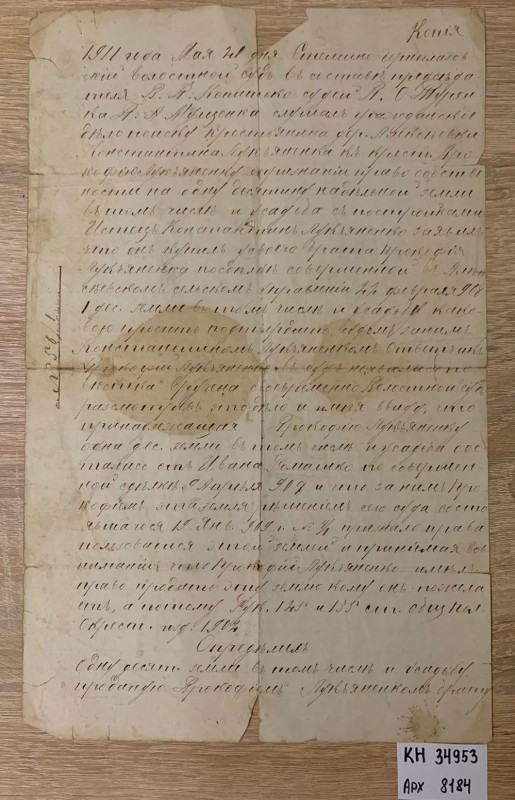 Копія
1911 года Мая 21 дня Стемино-Ермолаев
скій волостной судъ въ составѣ предсѣда
теля В. А. судей А. О. Турен
ка П. А. слушалъ гражданское
дѣло по иску крестьянина дер.
Константина Лукьяненка къ крест. Про
кофію Лукьяненку о признаніи право собстве
ности на одну десятину надѣльной земли
въ томъ числѣ и усадьба съ постройками
Истецъ Константинъ Лукьяненко заявилъ
что онъ купилъ у своего брата Прокофія
Лукьяненка по сдѣлкѣ совершенной въ
сельскомъ управленіи 22 февраля 908
1 дес. земли въ томъ числѣ и усадьбу како
вую проситъ подтвердить судомъ за нимъ
Константиномъ Лукьяненкомъ Отвѣтчикъ
Прокофій Лукьяненко въ судъ
вручена своевременно Волостной судъ
разсмотрѣвъ это дѣло и имѣя ввиду, что
принадлежащая Прокофію Лукьяненку
одна дес. земли въ томъ числѣ и усадьба дос
талась отъ Ивана Ромашко по совершен
ной сдѣлкѣ 9 Апрѣля 907 и что за нимъ Про
кофіемъ эта земля рѣшеніемъ сего суда состо
явшагося 19 Янв. 909 г. № признано права
пользоватся этой землей и принимая во
вниманіе что Прокофій Лукьяненко имѣлъ
право продать эту землю кому онъ пожела
етъ, а потому Рук. 125 и 135 ст. общ. пол.
О крест. изд. 1902
Опредѣлилъ
Одну десят. земли въ томъ числѣ и усадьбу
проданую Прокофіемъ Лукьяненкомъ брату
№ 56/
КН 34953
Арх 8184